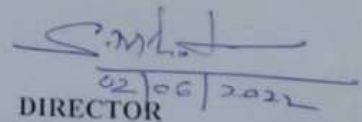 02/06/2022
DIRECTOR